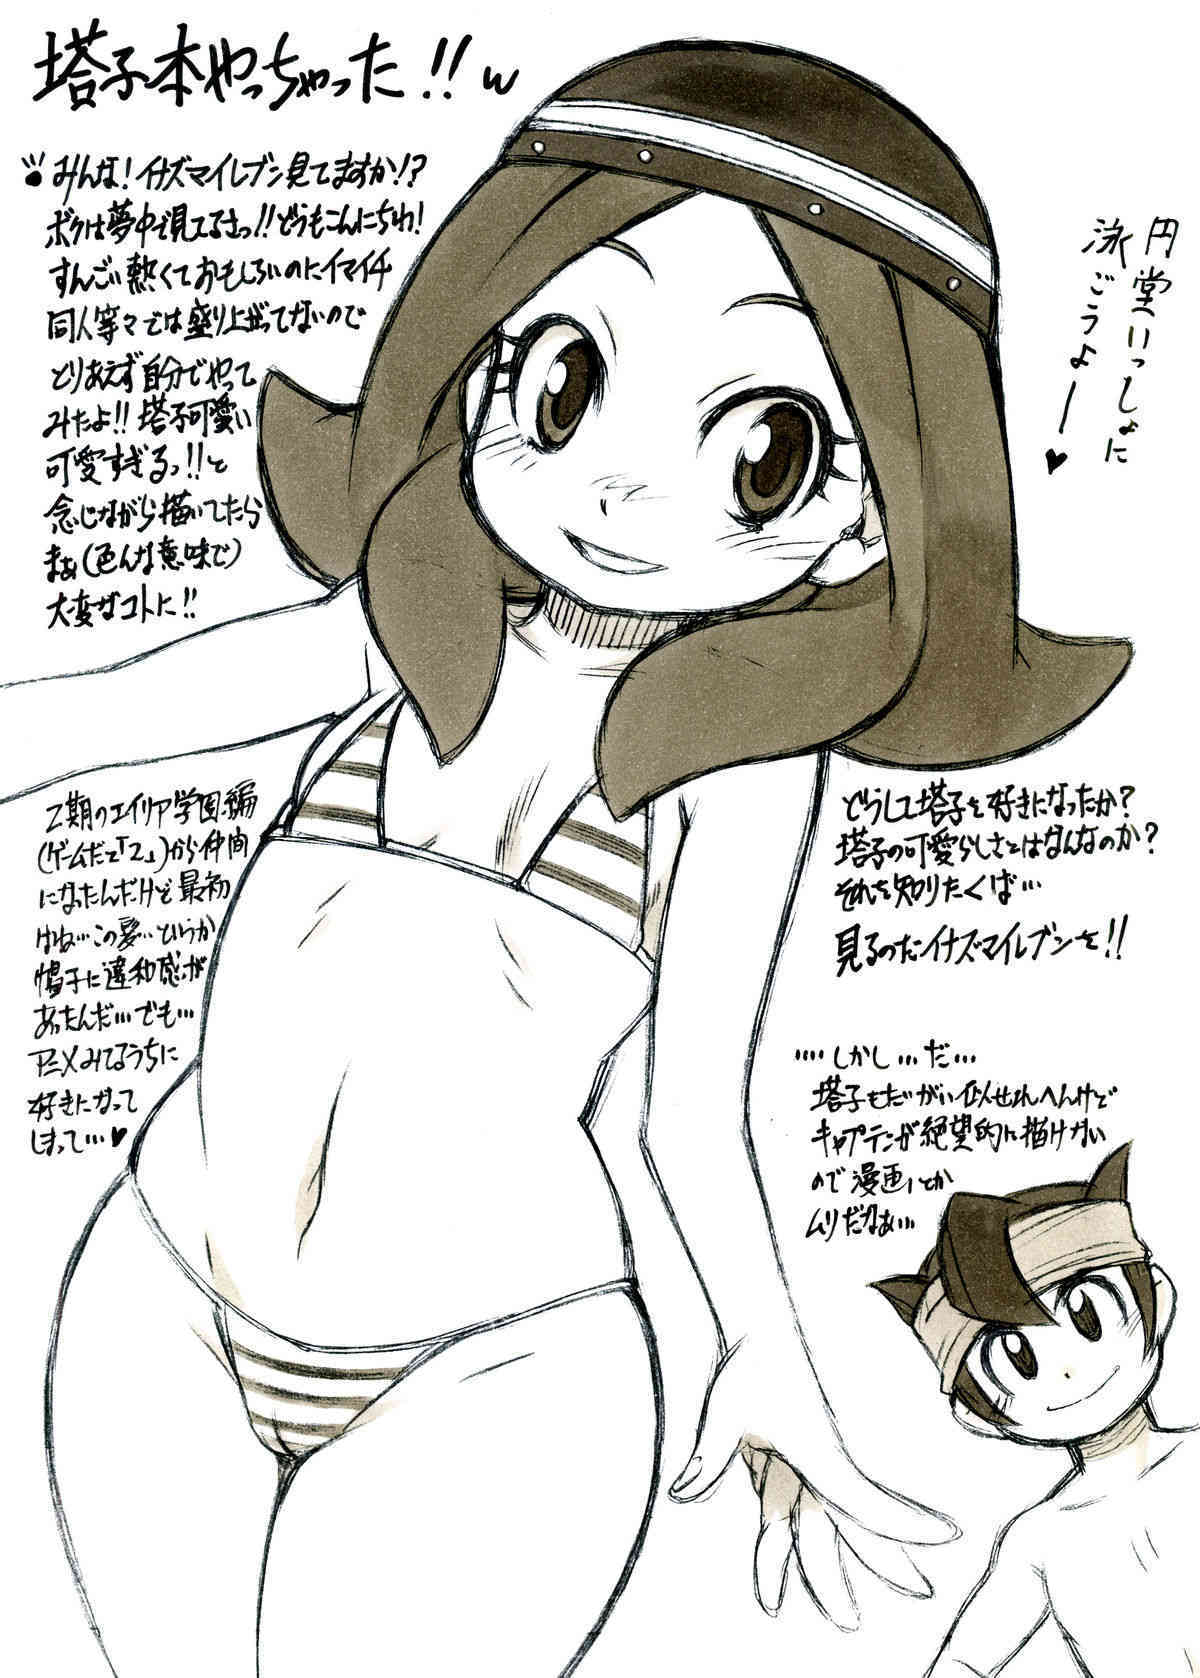 塔子本やっちゃった!!w
みんな!イナズマイレブン見てますか!?
ボクは夢中で見てるさっ!!どうもこんにちわ!
すんごい熱くておもしろいのにイマイチ
同人等々では盛り上がってないので
とりあえず自分でやって
みたよ!!塔子可愛い
可愛すぎるっ!!と
念じながら描いてたら
まぁ(色んな意味で)
大変なコトに!!
円堂いっしょに
泳ごうよー♥
2期のエイリア学園編
(ゲームだと「2」)から仲間
になったんだけど最初
はね…この髪…というか
帽子に違和感が
あったんだ…でも…
アニメみてるうちに
好きになって
しまって…♥
どうして塔子を好きになったか?
塔子の可愛らしさとはなんなのか?
それを知りたくば…
見るのだイナズマイレブンを!!
….しかし…だ…
塔子もだがい似せれへんけど
キャプテンが絶望的に描けない
ので漫画とか
ムリだなぁ…